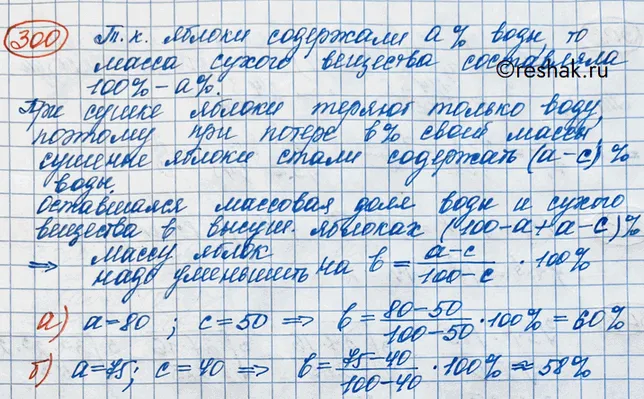 300
Т.к. яблоки содержали a% воды, то
масса сухого вещества составляла
©reshak.ru
100% - a%.
При сушке яблоки теряют только воду,
поэтому при потере b% своей массы,
сушеные яблоки стали содержать (a-c)%
воды.
Оставшаяся массовая доля воды и сухого
вещества в высуш. яблоках (100-a+a-c)%
⇒ массу яблок
надо уменьшить на b = (a-c)/(100-c) · 100%
а) a=80 ; c=50 ⇒ b = (80-50)/(100-50) · 100% = 60%
б) a=75; c=40 ⇒ b = (75-40)/(100-40) · 100% ≈ 58%